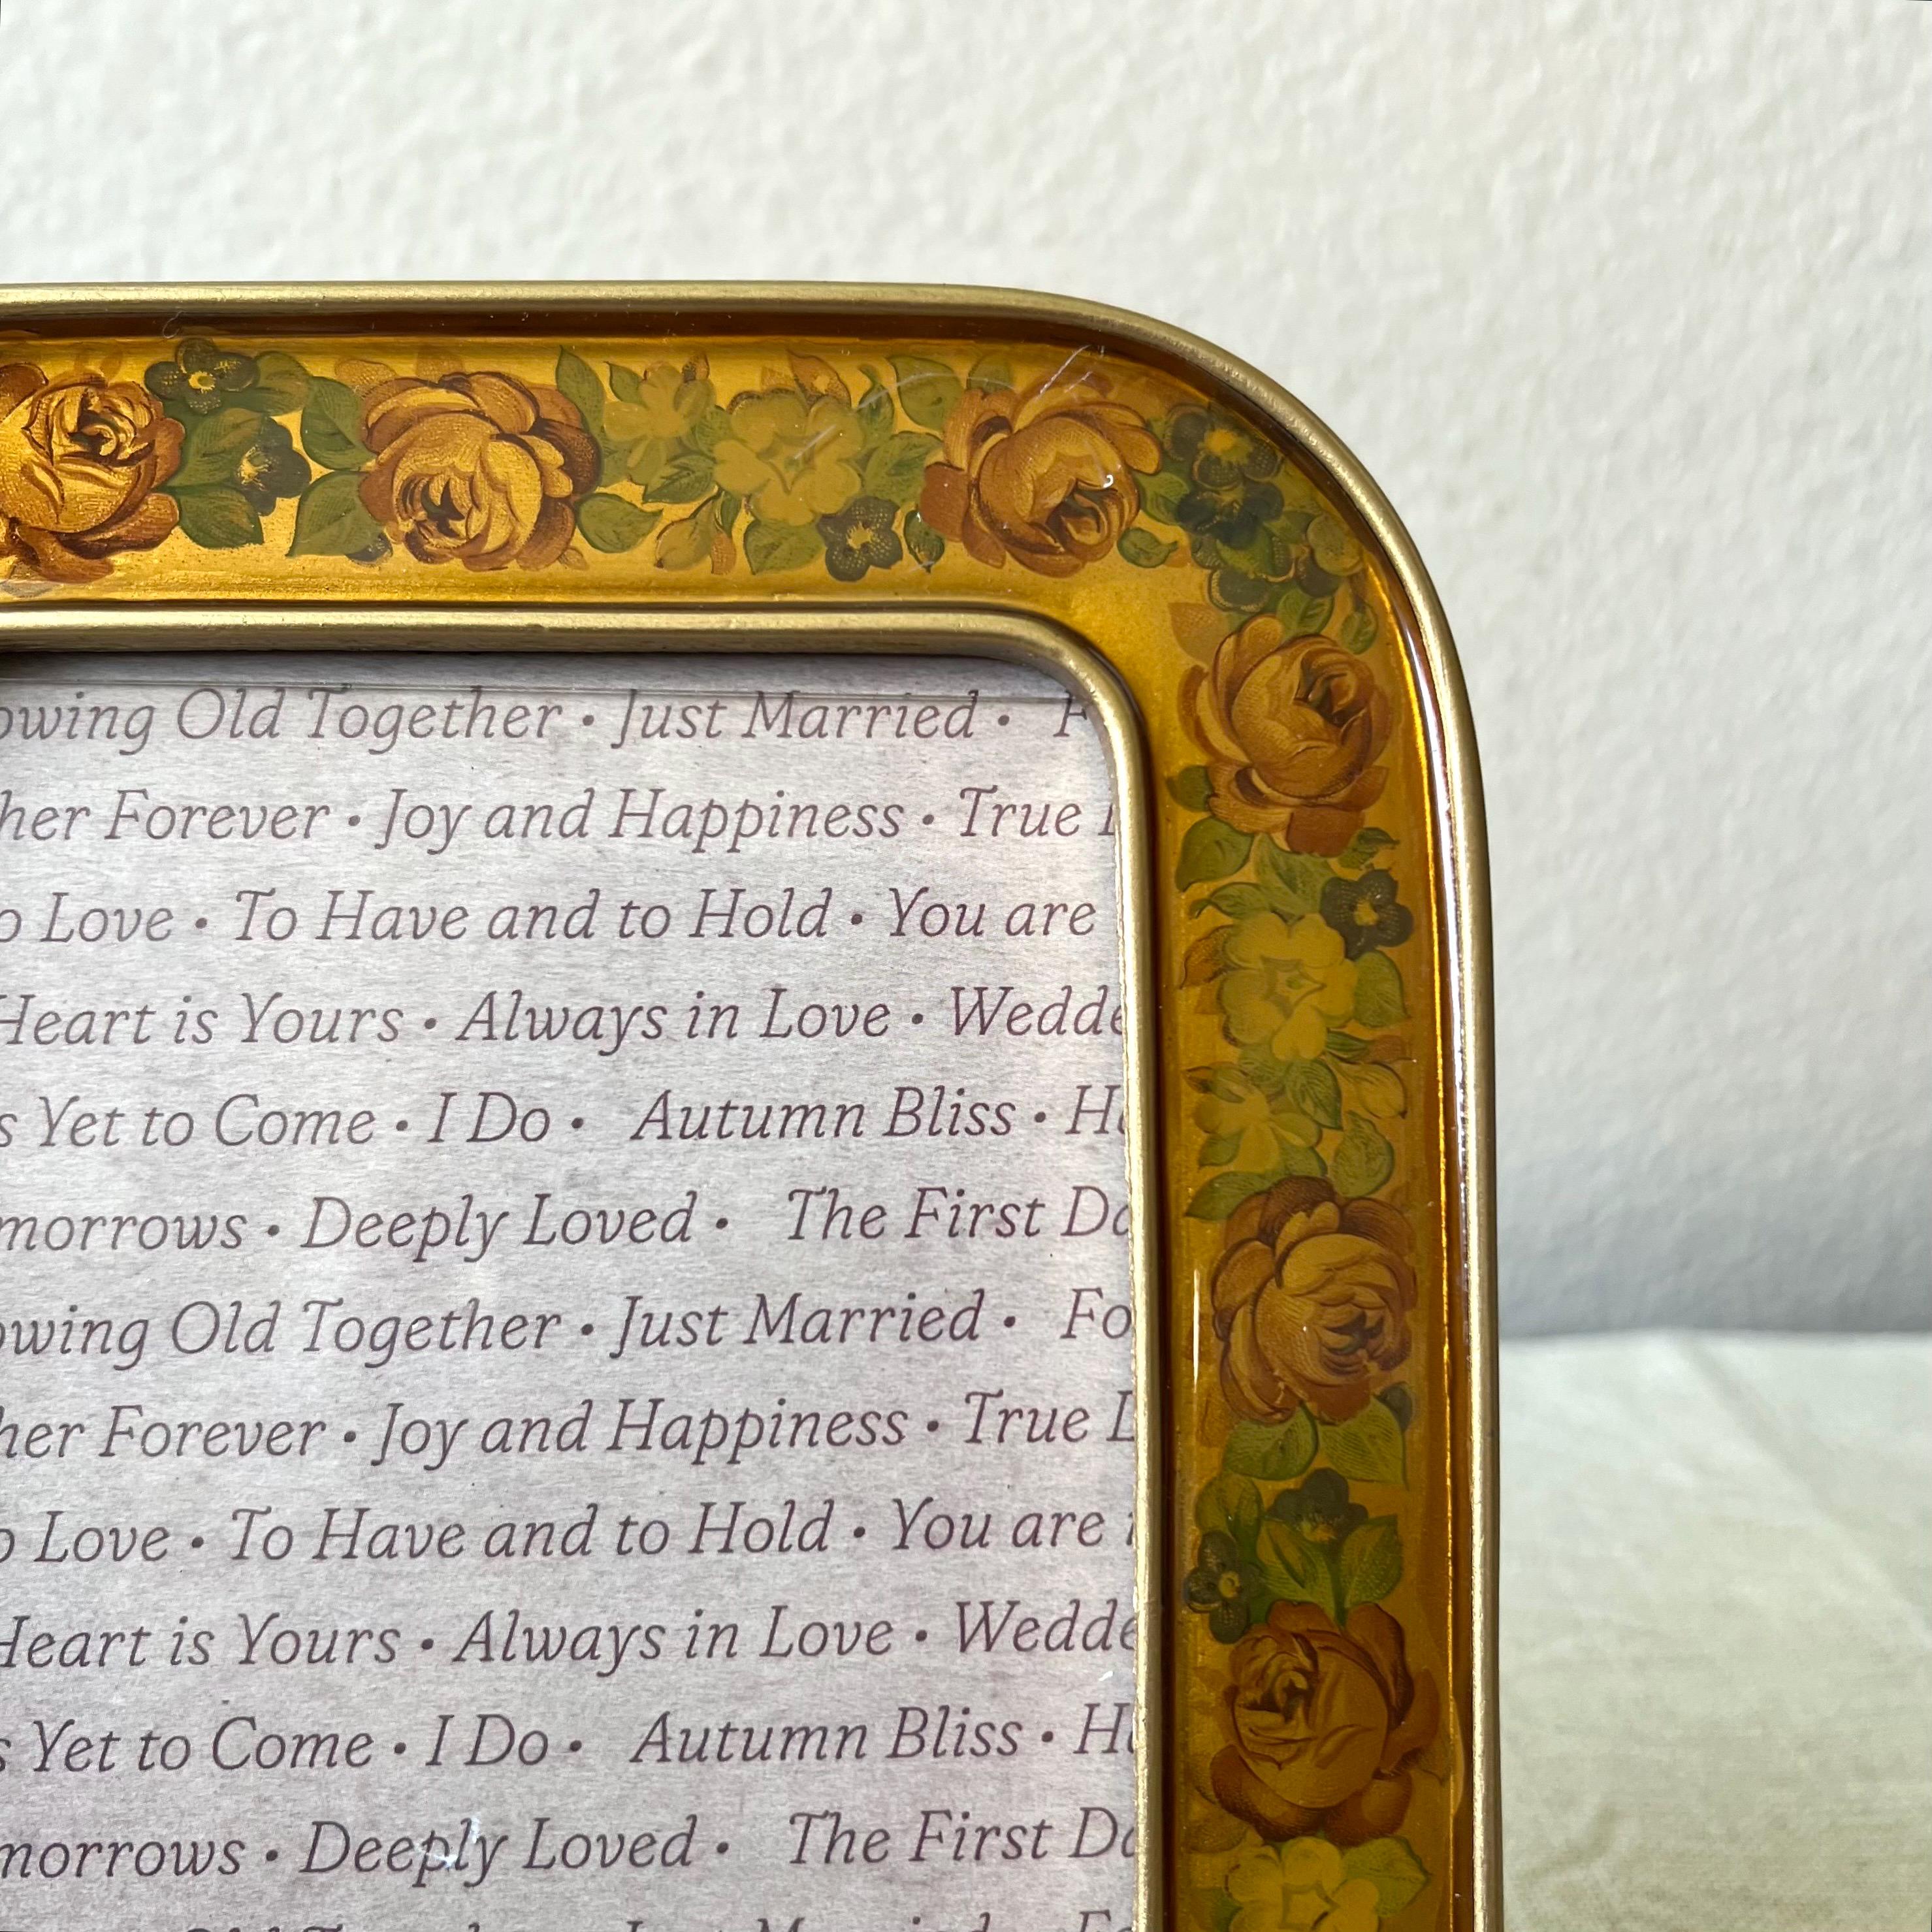 Old Together • Just Married •
Forever • Joy and Happiness • True
Love • To Have and to Hold • You are
Heart is Yours • Always in Love •
Yet to Come • I Do • Autumn Bliss •
Deeply Loved • The First
Old Together • Just Married •
Forever • Joy and Happiness • True
Love • To Have and to Hold • You are
Heart is Yours • Always in Love •
Yet to Come • I Do • Autumn Bliss •
Deeply Loved • The First